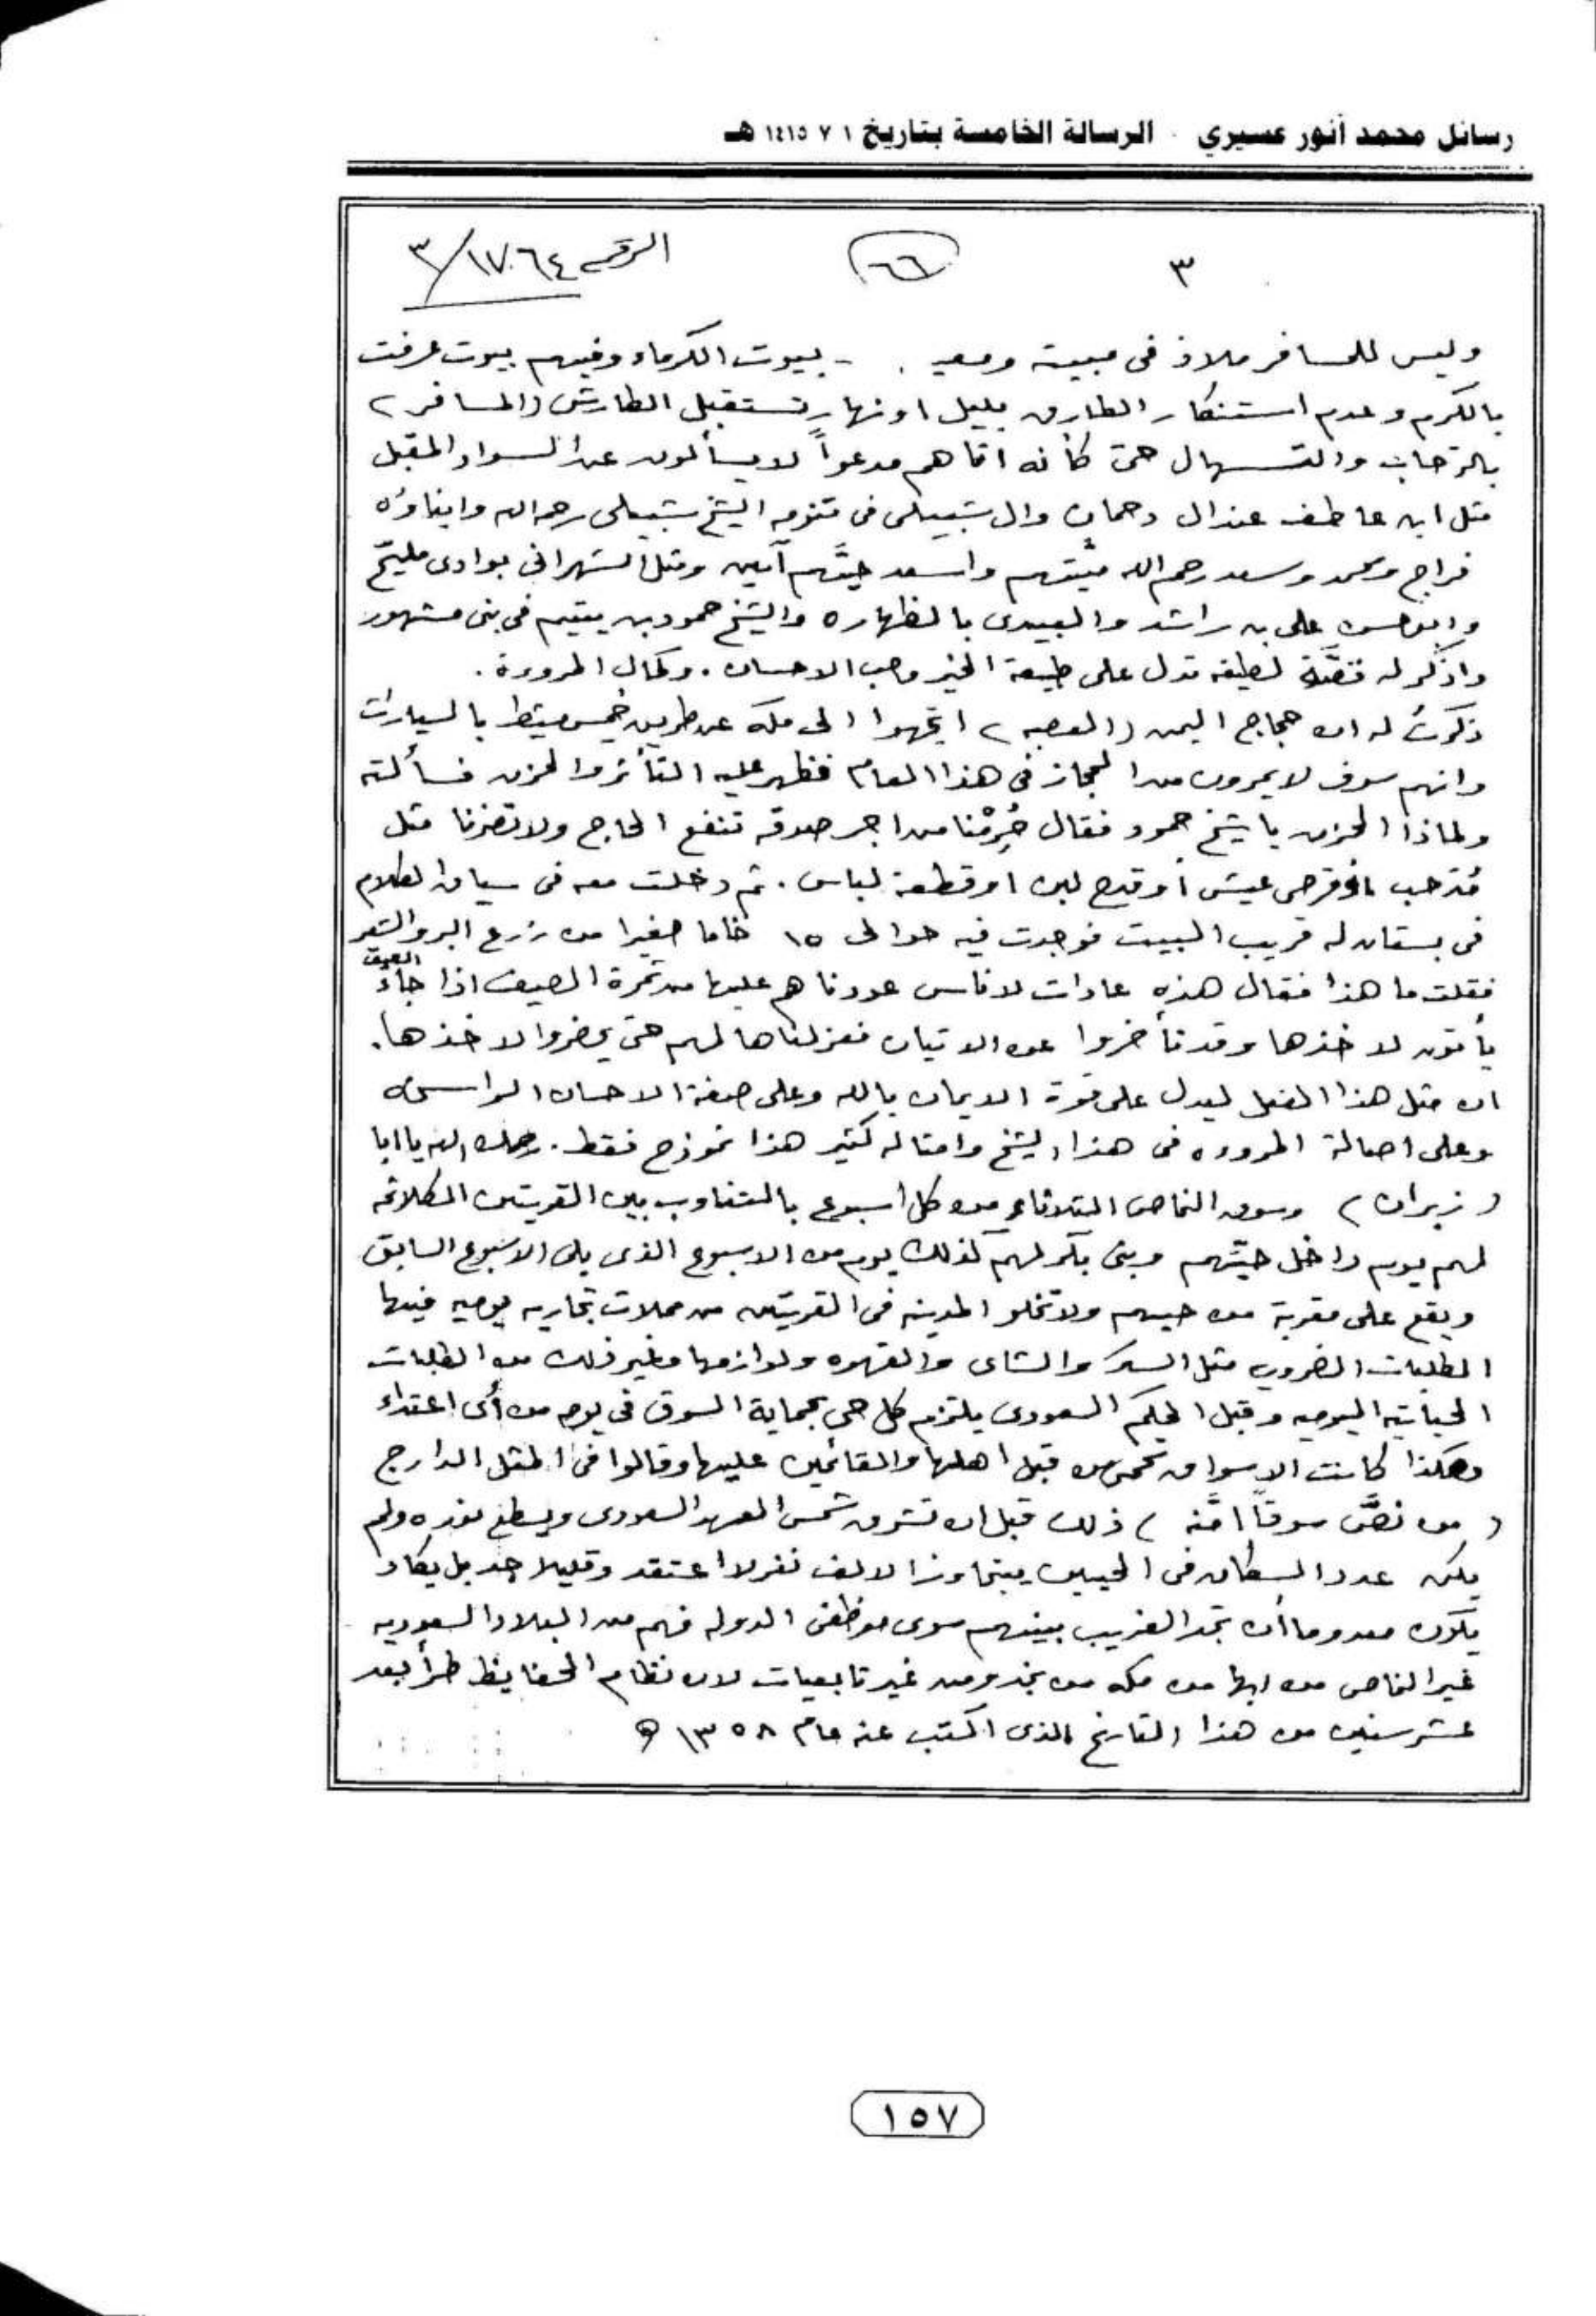 رسائل محمد أنور عسيري الرسالة الخامسة بتاريخ ١ ٧ ١٤١٥ هـ
٣
٦٦
الرقم ١٧٠٦٤/٣
وليس للمسافر ملاذ فى مبيته ـ بيوت الكرماء وفيهم بيوت عرفت
بالكرم وعدم استنكار الطارق بليل او نهار تستقبل الطارش (المسافر)
بالترحاب والتسهال حتى كأنه اتاهم مدعواً لا يسألون عن السواد المقبل
مثل ابن عاطف عند ال دحمان وال شبيلى فى تنومه الشيخ شبيلى رحمه الله وابناؤه
فراج ومحمد وسعد رحم الله ميّتهم واسعد حيَّهم آمين ومثل الشهرانى بوادى مليّح
وابو حسن على بن راشد والبييدى بالظهاره والشيخ حمود بن يتيم فى بنى مشهور
واذكر له قصَّة لطيفه تدل على طبيعة الخير وحب الاحسان. وكمال المروءة.
ذكرتُ له ان حجاج اليمن (العصبه) اتجهوا الى مكه عن طريق خميس مشيط بالسيارات
وانهم سوف لا يمرون من الحجاز فى هذا العام فظهر عليه التأثر والحزن فسألته
ولماذا الحزن يا شيخ حمود فقال حُرِمْنا من اجر صدقه تنفع الحاج ولا تضرنا مثل
قرص عيش أو قدح لبن او قطعة لباس. ثم دخلت معه فى سياق الكلام
فى بستان له قريب البيت فوجدت فيه حوالى ١٥ صغيرا من زرع البر والشعير
فقلت ما هذا فقال هذه عادات لاناس عودناهم عليها من ثمرة الصيف اذا جاء الصيف
يأتون لاخذها وقد تأخروا عن الاتيان فعزلناها لهم حتى يحضروا لاخذها.
ان مثل هذا الفعل ليدل على قوة الايمان بالله وعلى صفة الاحسان
وعلى اصالة المروءه فى هذا الشيخ وامثاله كثير هذا نموذج فقط. رحمك الله يا ابا
(زيران) وسوق النماص الثلاثاء من كل أسبوع بالتناوب بين القريتين الكلاثمه
لهم يوم داخل حيّهم وبنى بكر لهم كذلك يوم من الاسبوع الذى يلى الاسبوع السابق
ويقع على مقربة من حيهم ولا تخلو المدينه فى القريتين من محلات تجاريه يوميه فيها
الطلبات الضروريه مثل السكر والشاى والقهوه ولوازمها وغير ذلك من الطلبات
الحياتيه اليوميه وقبل الحكم السعودى يلتزم كل حى بحماية السوق فى يومه من أى اعتداء
وهكذا كانت الاسواق تحمى من قبل اهلها والقائمين عليها وقالوا فى المثل الدارج
(من نصَّ سوقاً امَّنه) ذلك قبل ان تشرق شمس العهد السعودى ويسطع نوره ولم
يكن عدد السكان فى الحيين يتجاوز الالف نفر لا اعتقد وقليلا جد بل يكاد
يكون معدوما أن تجد الغريب بينهم سوى موظفى الدوله فهم من البلاد السعوديه
غير النماص من ابها من مكه من نجد ومن غير تابعيات لان نظام الحفايظ طرأ بعد
عشر سنين من هذا التاريخ الذى اكتب عنه عام ١٣٥٨ هـ
١٥٧